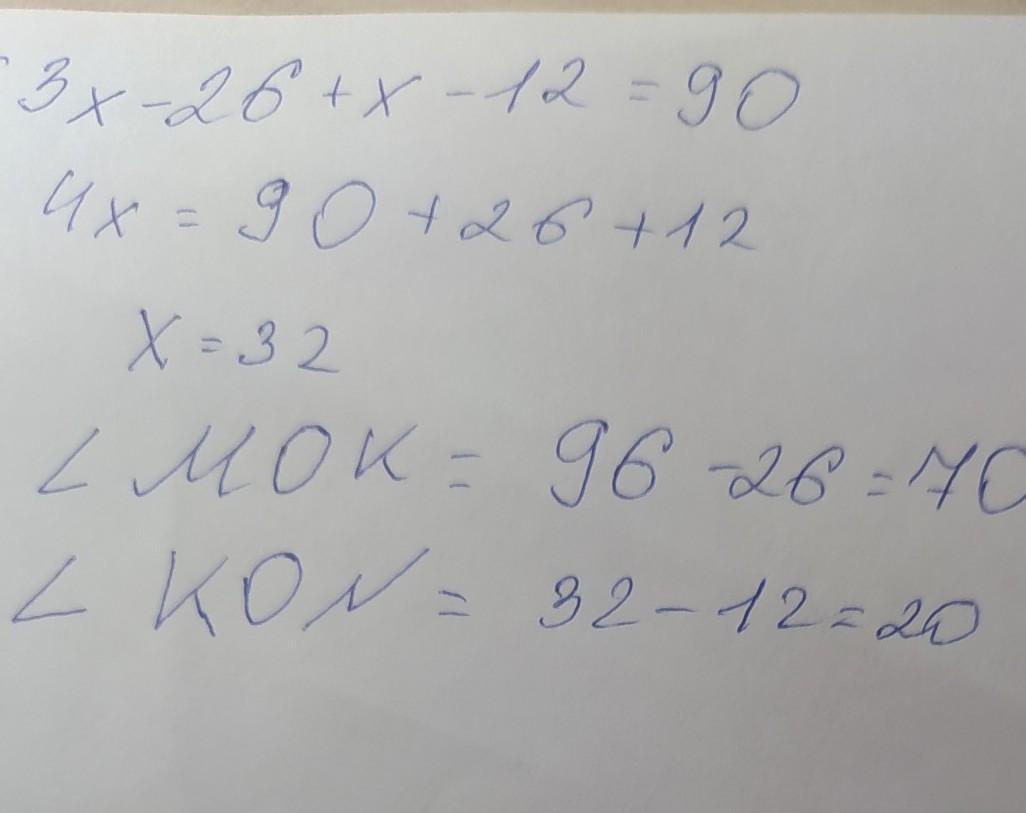 3x-26+x-12=90
4x=90+26+12
x=32
∠MOK=96-26=70
∠KON=32-12=20